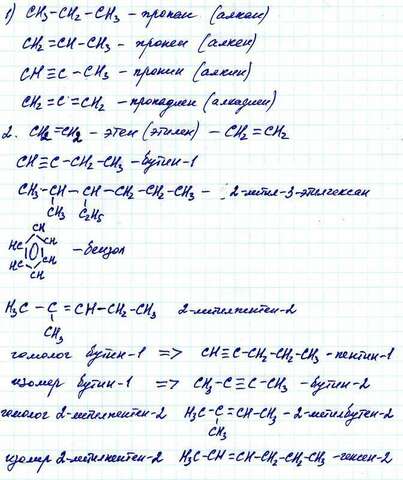 1) CH₃-CH₂-CH₃ - пропан (алкан)
CH₂=CH-CH₃ - пропен (алкен)
CH≡C-CH₃ - пропин (алкин)
CH₂=C=CH₂ - пропадиен (алкадиен)
2. CH₂=CH₂ - этен (этилен) - CH₂=CH₂
CH≡C-CH₂-CH₃ - бутин-1
CH₃-CH-CH-CH₂-CH₂-CH₃ - 2-метил-3-этилгексан
CH₃ C₂H₅
CH
HC CH
- бензол
HC CH
CH
H₃C-C=CH-CH₂-CH₃ 2-метилпентен-2
CH₃
гомолог бутин-1 => CH≡C-CH₂-CH₂-CH₃ - пентин-1
изомер бутин-1 => CH₃-C≡C-CH₃ - бутин-2
гомолог 2-метилпентен-2 H₃C-C=CH-CH₃ - 2-метилбутен-2
CH₃
изомер 2-метилпентен-2 H₃C-CH=CH-CH₂-CH₂-CH₃ - гексен-2